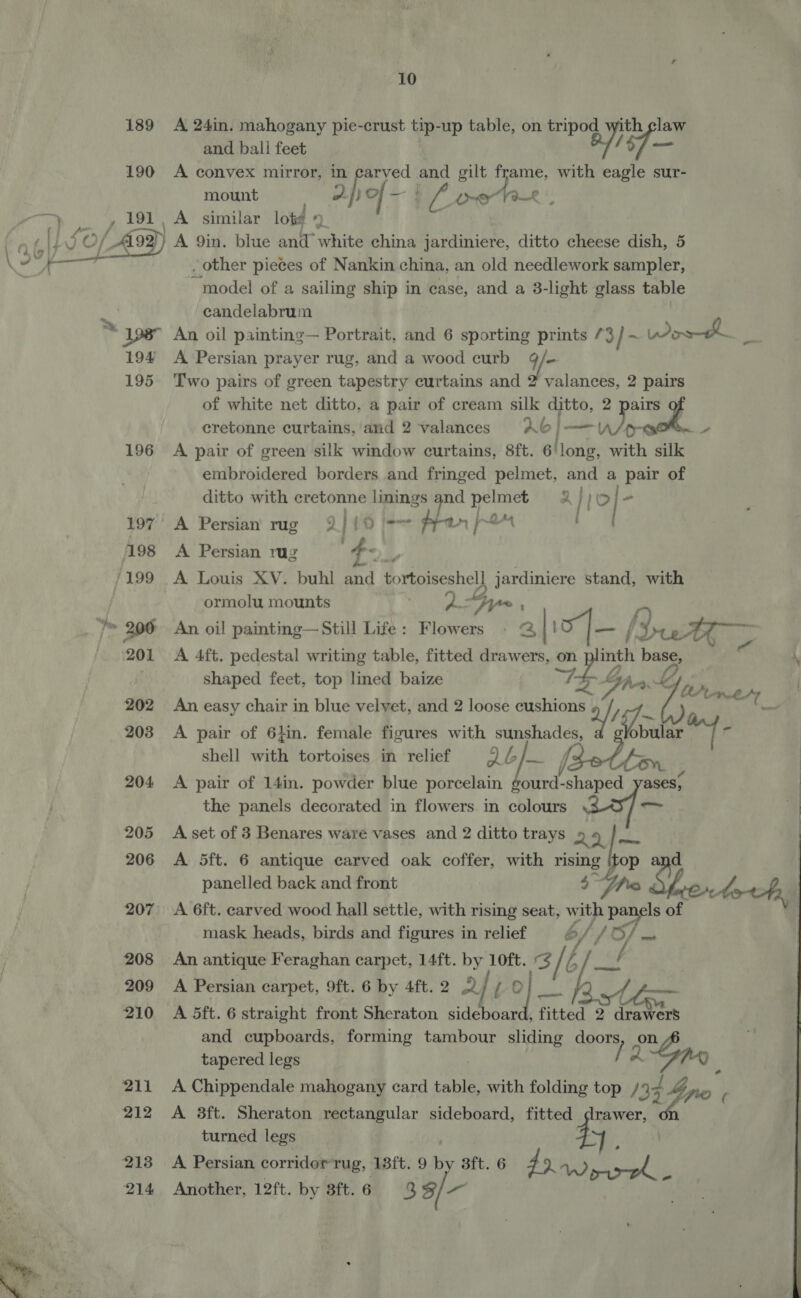 10
189 A 24in. mahogany pie-crust tip-up table, on tripod with claw
and ball feet
190 A convex mirror, in carved and gilt frame, with eagle sur-
mount
191 A similar lot
192 A 9in. blue and white china jardiniere, ditto cheese dish, 5
other pieces of Nankin china, an old needlework sampler,
model of a sailing ship in case, and a 3-light glass table
candelabrum
193 An oil painting—Portrait, and 6 sporting prints 13/-
194 A Persian prayer rug, and a wood curb 9/-
195 Two pairs of green tapestry curtains and 2 valances, 2 pairs
of white net ditto, a pair of cream silk ditto, 2 pairs of
cretonne curtains, and 2 valances 26/-
196 A pair of green silk window curtains, 8ft. 6 long, with silk
embroidered borders and fringed pelmet, and a pair of
ditto with cretonne linings and pelmet 2/10/-
197 A Persian rug 2/10/-
198 A Persian rug
199 A Louis XV. buhl and tortoiseshell jardiniere stand, with
ormolu mounts
200 An oil painting—Still Life: Flowers 2/10/-
201 A 4ft. pedestal writing table, fitted drawers, on plinth base,
shaped feet, top lined baize
202 An easy chair in blue velvet, and 2 loose cushions
203 A pair of 6½in. female figures with sunshades, a globular
shell with tortoises in relief 26/-
204 A pair of 14in. powder blue porcelain gourd-shaped vases,
the panels decorated in flowers in colours
205 A set of 3 Benares ware vases and 2 ditto trays 22/-
206 A 5ft. 6 antique carved oak coffer, with rising top and
panelled back and front
207 A 6ft. carved wood hall settle, with rising seat, with panels of
mask heads, birds and figures in relief
208 An antique Feraghan carpet, 14ft. by 10ft.
209 A Persian carpet, 9ft. 6 by 4ft. 2
210 A 5ft. 6 straight front Sheraton sideboard, fitted 2 drawers
and cupboards, forming tambour sliding doors, on 6
tapered legs
211 A Chippendale mahogany card table, with folding top
212 A 3ft. Sheraton rectangular sideboard, fitted drawer, on
turned legs
213 A Persian corridor rug, 13ft. 9 by 3ft. 6
214 Another, 12ft. by 3ft. 6 38/-